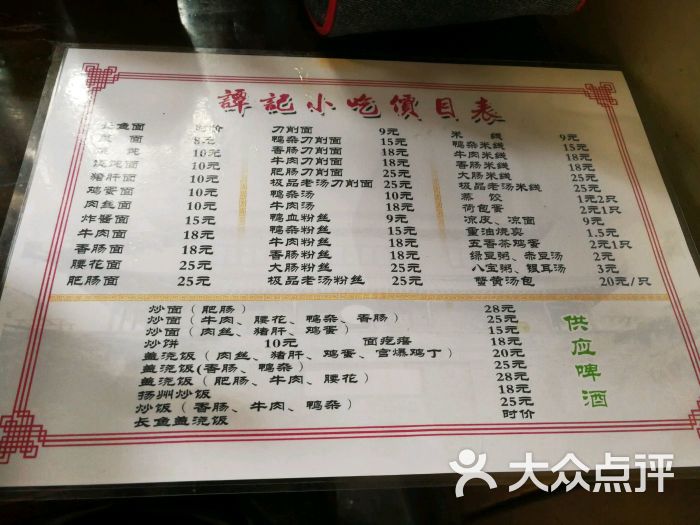 譚記小吃價目表
长鱼面 时价
面 8元
10元
馄饨面 10元
猪肝面 10元
鸡蛋面 10元
肉丝面 10元
炸酱面 15元
牛肉面 18元
香肠面 18元
腰花面 25元
肥肠面 25元
刀削面 9元
鸭杂刀削面 15元
香肠刀削面 18元
牛肉刀削面 18元
肥肠刀削面 25元
极品老汤刀削面 25元
鸭杂汤 10元
牛肉汤 18元
鸭血粉丝 9元
鸭杂粉丝 15元
牛肉粉丝 18元
香肠粉丝 18元
大肠粉丝 25元
极品老汤粉丝 25元
米线 9元
鸭杂米线 15元
牛肉米线 18元
香肠米线 18元
大肠米线 25元
极品老汤米线 25元
蒸饺 1元2只
荷包蛋 2元1只
凉皮、凉面 9元
重油烧卖 1.5元
五香茶鸡蛋 2元1只
绿豆粥、赤豆汤 2元
八宝粥、银耳汤 3元
蟹黄汤包 20元/只
炒面（肥肠） 28元
炒面（牛肉、腰花、鸭杂、香肠） 25元
炒面（肉丝、猪肝、鸡蛋） 15元
炒饼 10元 面疙瘩 18元
盖浇饭（肉丝、猪肝、鸡蛋、宫爆鸡丁） 20元
盖浇饭(香肠、鸭杂） 25元
盖浇饭（肥肠、牛肉、腰花） 28元
扬州炒饭 18元
炒饭（香肠、牛肉、鸭杂） 25元
长鱼盖浇饭 时价
供应啤酒
大众点评